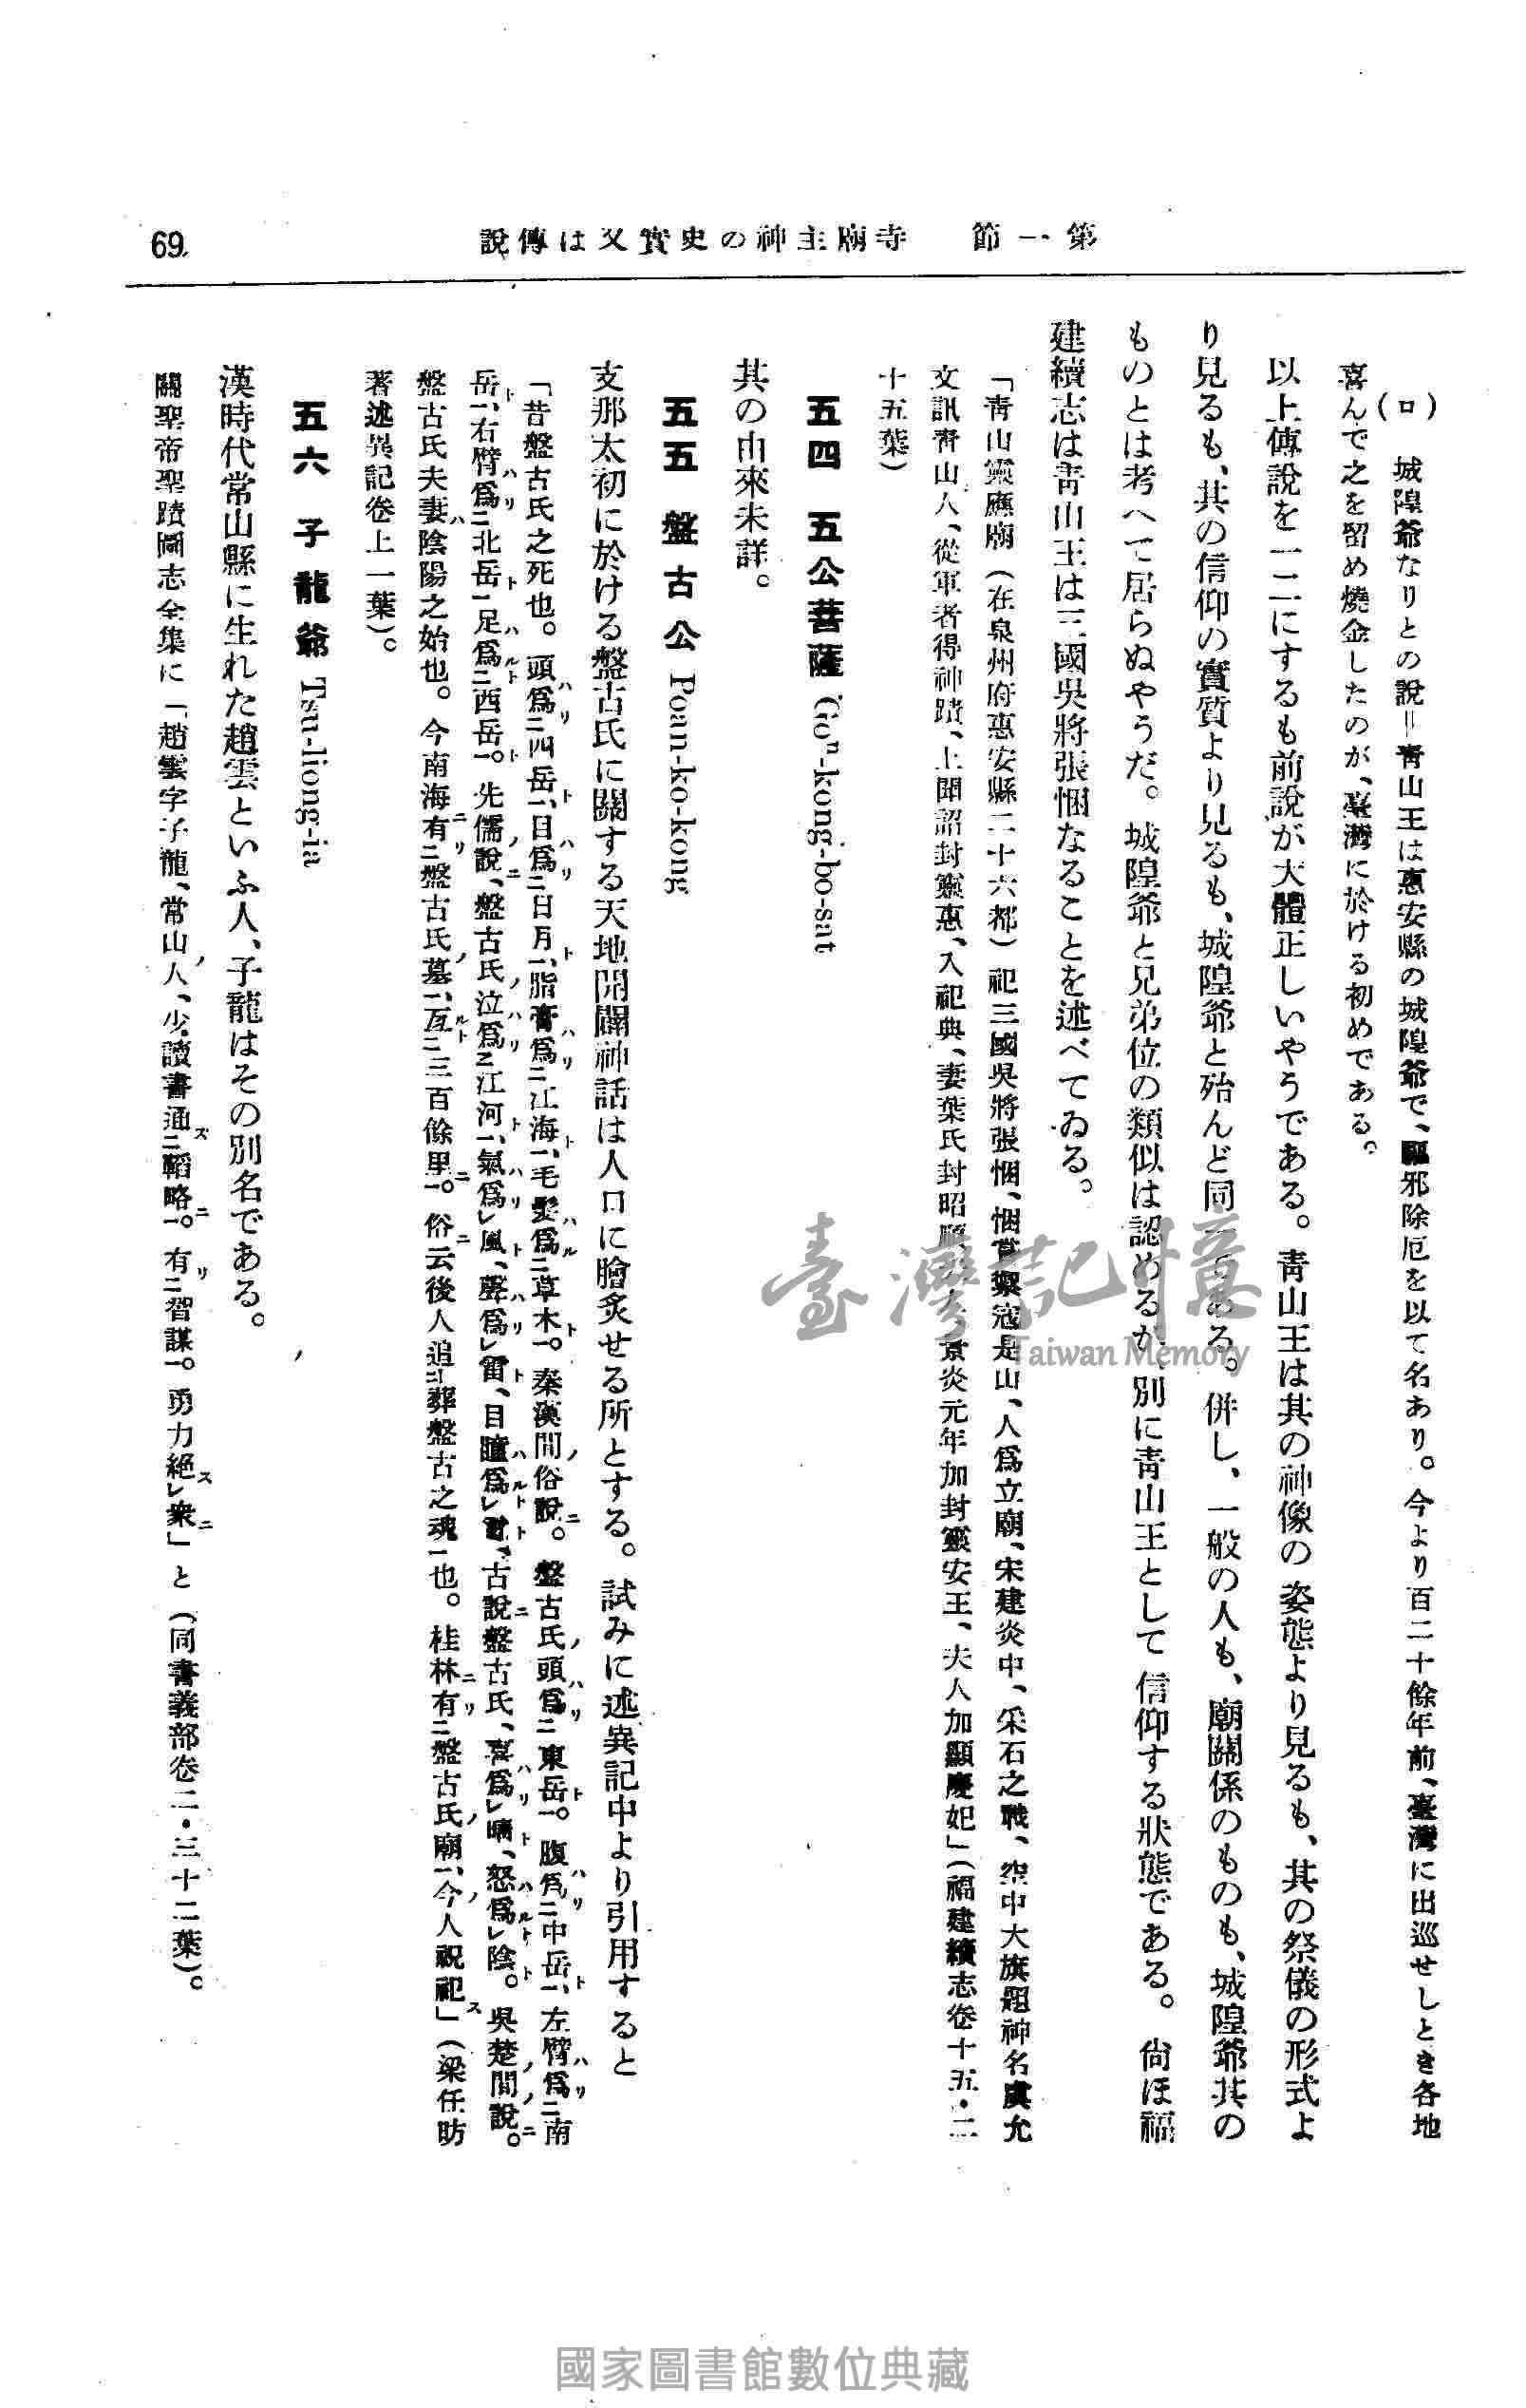 第一節　寺廟主神の史實又は傳說
69
（ロ）　城隍爺なりとの說＝靑山王は惠安縣の城隍爺で、驅邪除厄を以て名あり。今より百二十餘年前、臺灣に出巡せしとき各地
喜んで之を留め燒金したのが、臺灣に於ける初めである。
以上傳說を一二にするも前說が大體正しいやうである。靑山王は其の神像の姿態より見るも、其の祭儀の形式よ
り見るも、其の信仰の實質より見るも、城隍爺と殆んど同一である。併し、一般の人も、廟關係のものも、城隍爺其の
ものとは考へて居らぬやうだ。城隍爺と兄弟位の類似は認めるが、別に靑山王として信仰する狀態である。尙ほ福
建續志は靑山王は三國吳將張悃なることを述べてゐる。
「靑山靈應廟（在泉州府惠安縣二十六都）祀三國吳將張悃、悃嘗禦寇是山、人爲立廟、宋建炎中、采石之戰、空中大旗題神名虞允
文訊靑山人、從軍者得神蹟、上聞詔封靈惠、入祀典、妻葉氏封昭順夫人、景炎元年加封靈安王、夫人加顯慶妃」（福建續志卷十五・二
十五葉）
五四　五公菩薩 Go͘ⁿ-kong-bo-sat
其の由來未詳。
五五　盤古公 Poan-ko-kong
支那太初に於ける盤古氏に關する天地開闢神話は人口に膾炙せる所とする。試みに述異記中より引用すると
「昔盤古氏之死也。頭爲ニ四岳一、目爲ニ日月一、脂膏爲ニ江海一、毛髮爲ニ草木一。秦漢間俗說。盤古氏頭爲ニ東岳一。腹爲ニ中岳一、左臂爲ニ南
岳一、右臂爲ニ北岳一足爲ニ西岳一。先儒說、盤古氏泣爲ニ江河一、氣爲レ風、聲爲レ雷、目瞳爲レ電、古說盤古氏、喜爲レ晴、怒爲レ陰。吳楚間說。
盤古氏夫妻陰陽之始也。今南海有ニ盤古氏墓一、亙ニ三百餘里一。俗云後人追ニ葬盤古之魂一也。桂林有ニ盤古氏廟一、今人祝祀」（梁任昉
著述異記卷上一葉）。
五六　子龍爺 Tsu-liong-ia
漢時代常山縣に生れた趙雲といふ人、子龍はその別名である。
關聖帝聖蹟圖志全集に「趙雲字子龍、常山人、少讀書通ニ韜略一。有ニ智謀一。勇力絕レ衆」と（同書義部卷二・三十二葉）。
臺灣記憶
Taiwan Memory
國家圖書館數位典藏